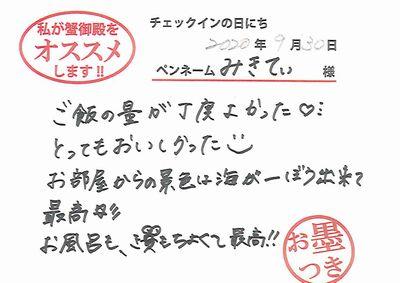 私が蟹御殿を
オススメ
します!!
チェックインの日にち
2020年9月30日
ペンネーム みきてぃ 様
ご飯の量が丁度よかった♡…
とってもおいしかった
お部屋からの景色は海が一ぼう出来て
最高
お風呂も、もちよくて最高!!
お墨
つき